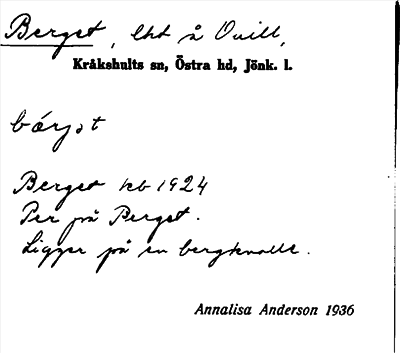 Berget, lht å Qvill,
Kråkshults sn, Östra hd, Jönk. l.
bárjət
Berget kb 1924
Per på Berget.
Ligger på en bergknalle.
Annalisa Anderson 1936